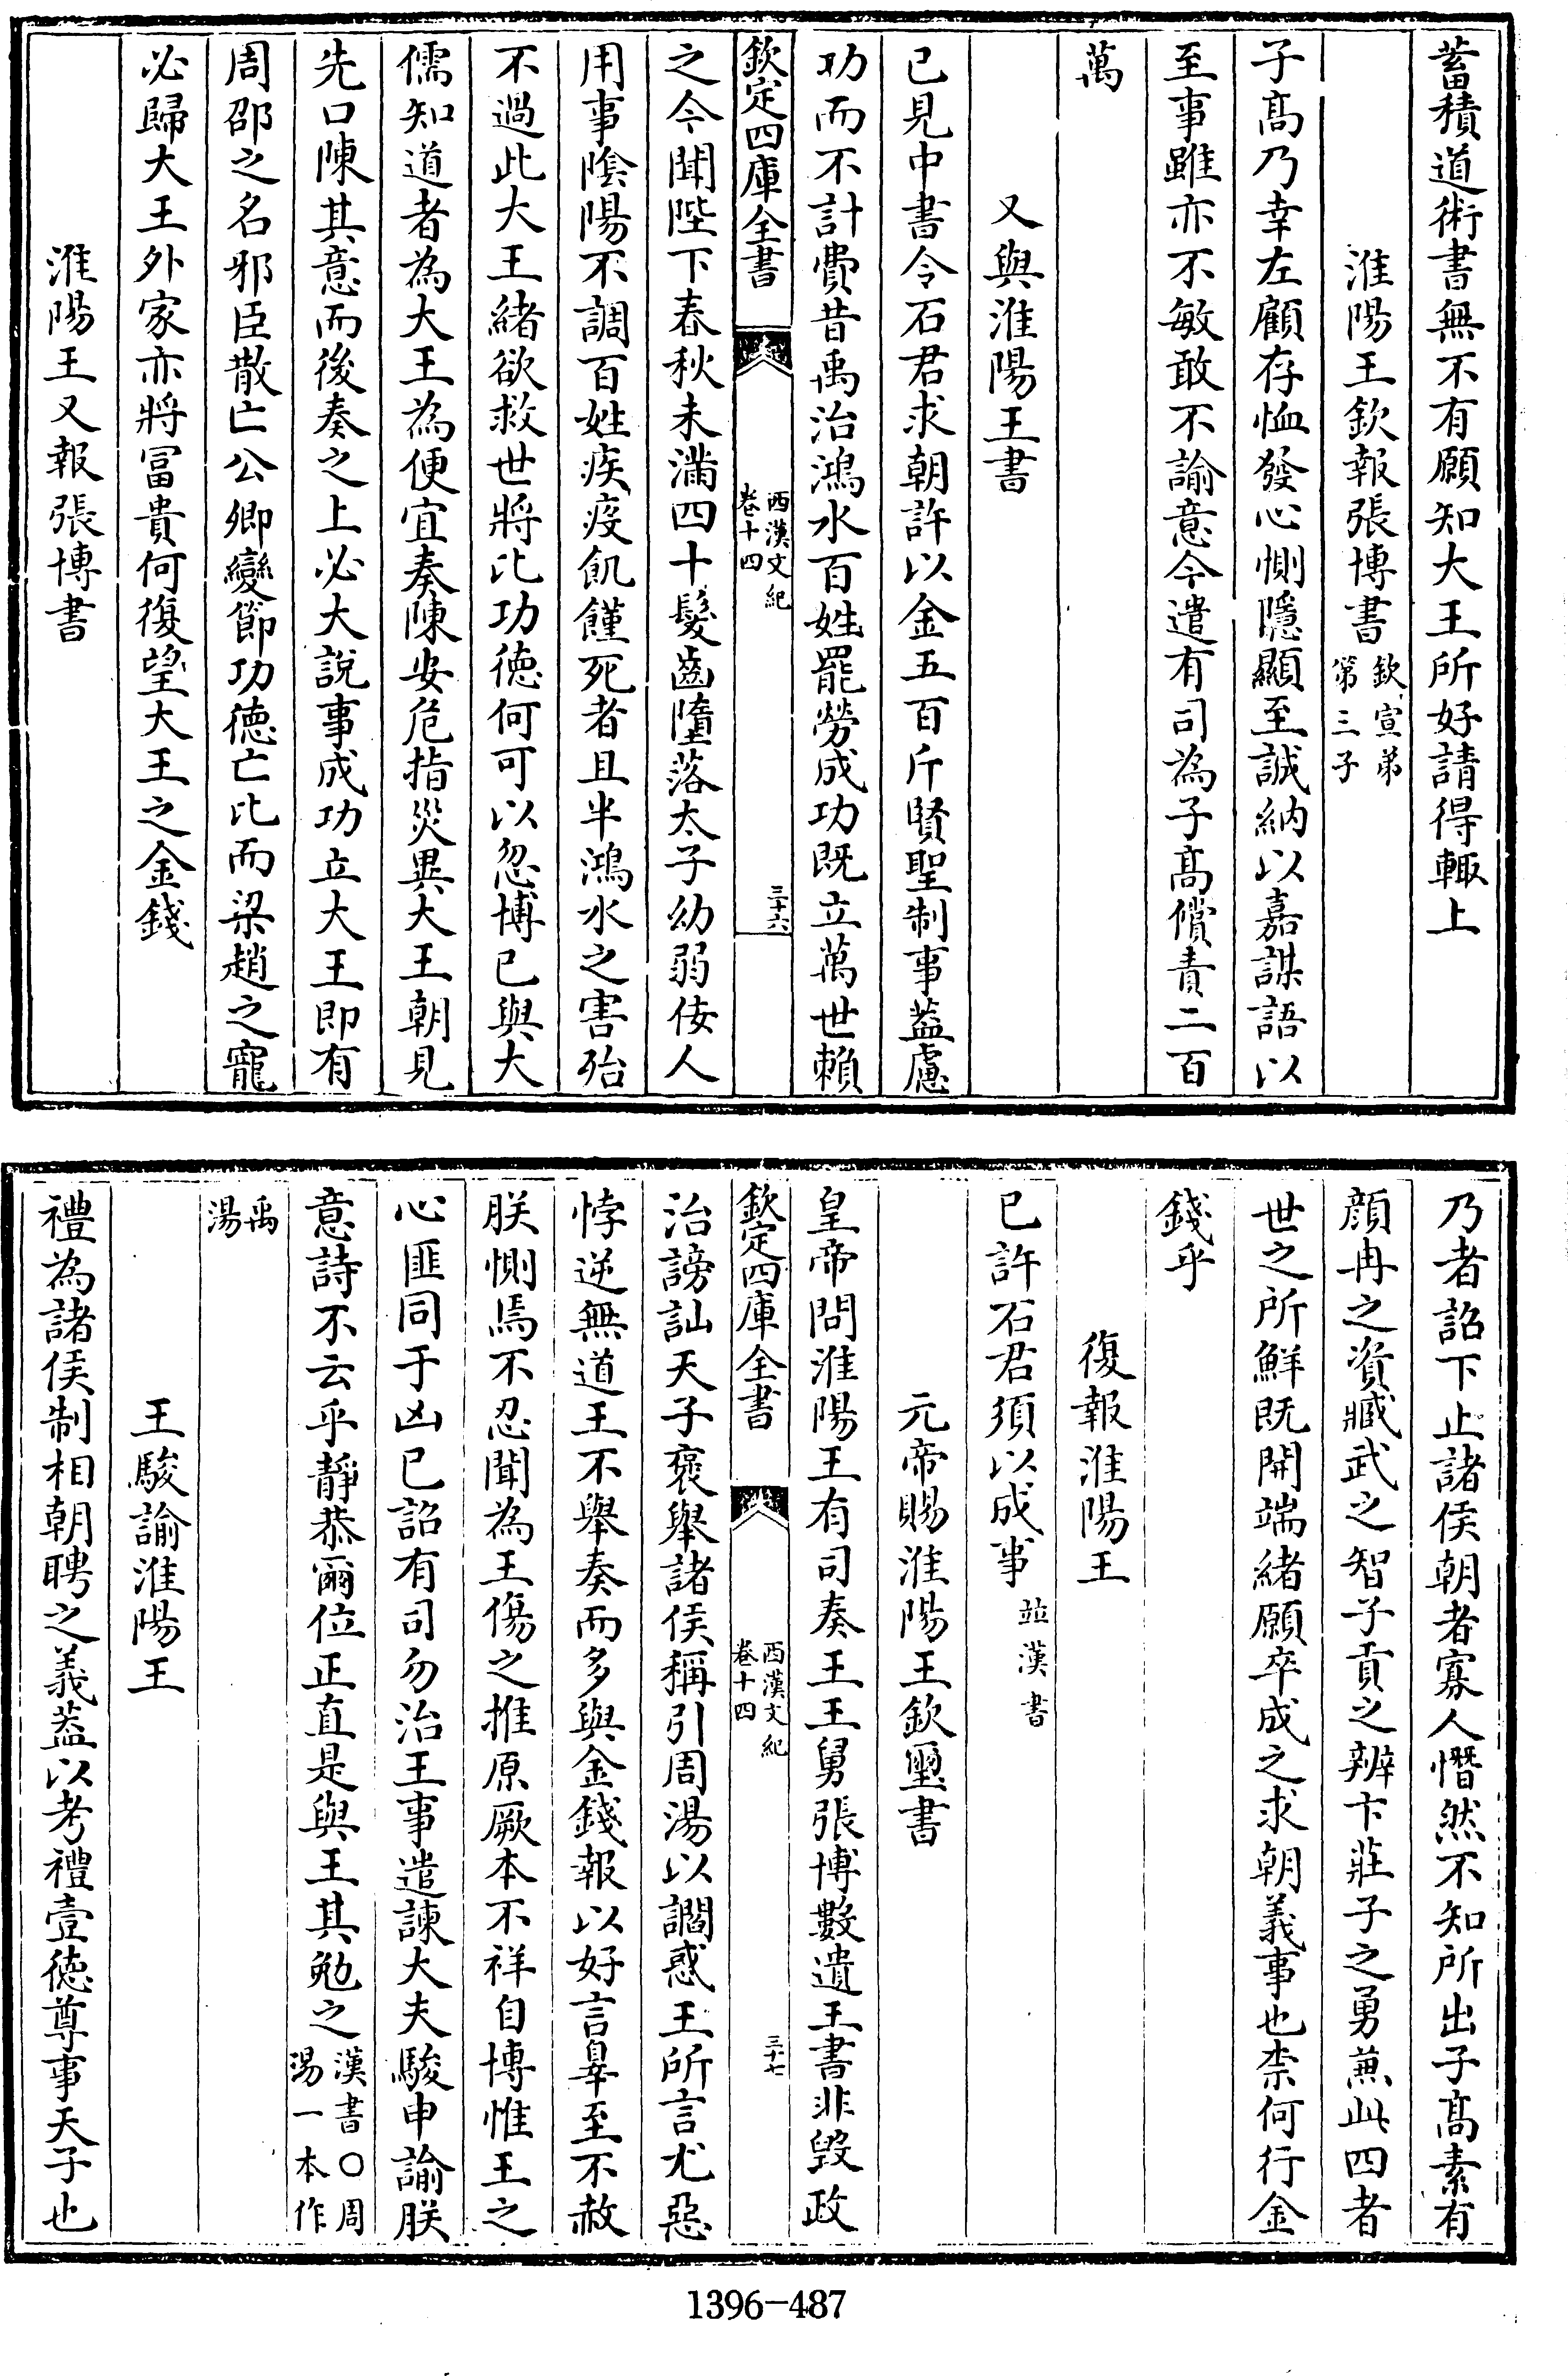 蓄積道術書無不有願知大王所好請得輒上
淮陽王欽報張博書欽宣弟第三子
子高乃幸左顧存恤發心惻隱顯至誠納以嘉謀語以
至事雖亦不敏敢不諭意今遣有司為子高償責二百
萬
又與淮陽王書
已見中書令石君求朝許以金五百斤賢聖制事葢慮
功而不計費昔禹治鴻水百姓罷勞成功既立萬世賴
欽定四庫全書
西漢文紀
卷十四
三十六
之今聞陛下春秋未滿四十髮齒墮落太子幼弱佞人
用事陰陽不調百姓疾疫飢饉死者且半鴻水之害殆
不過此大王緒欲救世將比功徳何可以忽博已與大
儒知道者為大王為便宜奏陳安危指災異大王朝見
先口陳其意而後奏之上必大說事成功立大王即有
周邵之名邪臣散亡公卿變節功徳亡比而梁趙之寵
必歸大王外家亦將冨貴何復望大王之金錢
淮陽王又報張博書
乃者詔下止諸侯朝者寡人憯然不知所出子高素有
顔冉之資臧武之智子貢之辨卞莊子之勇兼此四者
世之所鮮既開端緒願卒成之求朝義事也柰何行金
錢乎
復報淮陽王
已許石君須以成事竝漢書
元帝賜淮陽王欽璽書
皇帝問淮陽王有司奏王王舅張博數遺王書非毀政
欽定四庫全書
西漢文紀
卷十四
三十七
治謗訕天子襃舉諸侯稱引周湯以讇惑王所言尤惡
悖逆無道王不舉奏而多與金錢報以好言辠至不赦
朕惻焉不忍聞為王傷之推原厥本不祥自博惟王之
心匪同于凶已詔有司勿治王事遣諫大夫駿申諭朕
意詩不云乎靜恭爾位正直是與王其勉之漢書〇周湯一本作
禹湯
王駿諭淮陽王
禮為諸侯制相朝聘之義葢以考禮壹徳尊事天子也
1396-487